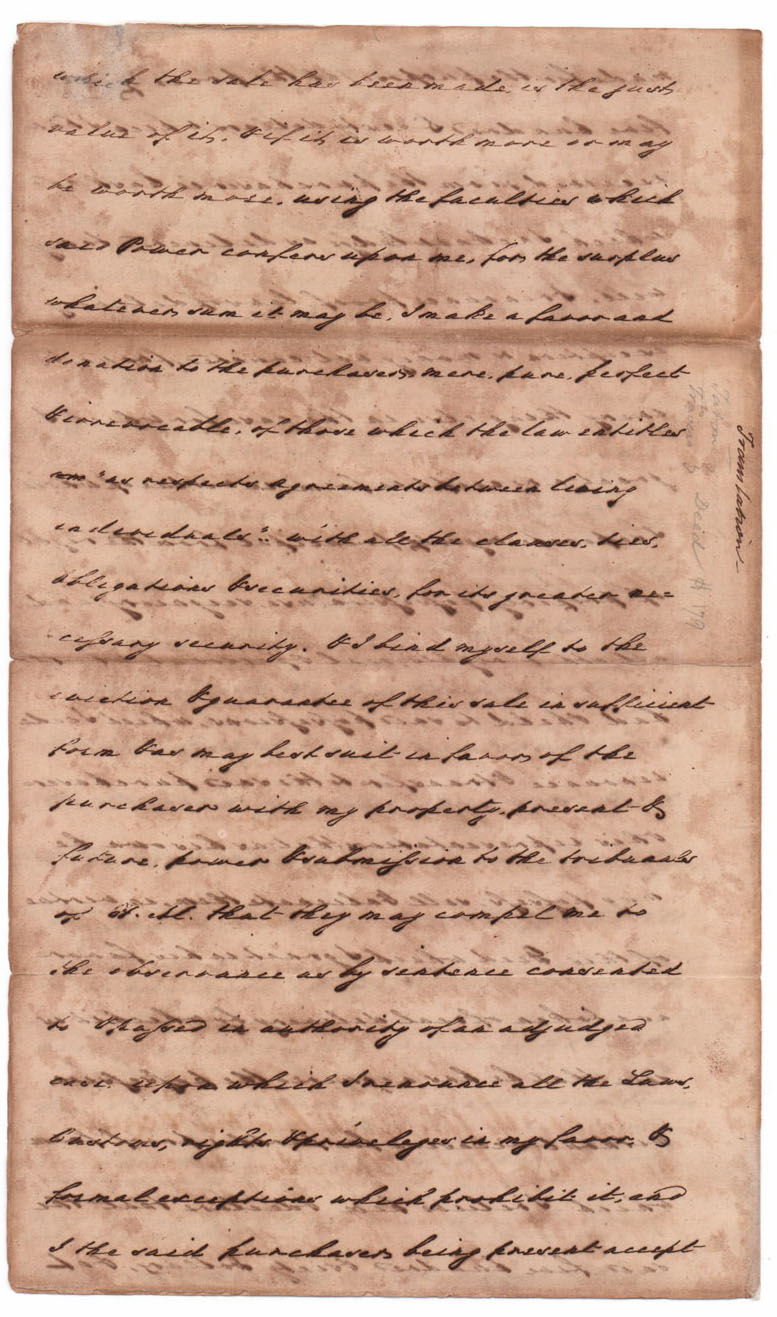 which the sale has been made is the just
value of it. & if it is worth more or may
be worth more, using the faculties which
said Power confers upon me, for the surplus
whatever sum it may be, I make a favor and
donation to the purchasers, mere, pure, perfect
& irrevocable, of those which the law entitles
"as respects agreements between living
individuals": with all the clauses, ties,
obligations & securities, for its greater ne=
cessary security. & I bind myself to the
eviction & guarantee of this sale in sufficient
form & as may best suit in favor of the
purchaser with my property, present &
future, power & submission to the tribunals
of H. M. that they may compel me to
the observance as by sentence consented
to & passed in authority of an adjudged
case upon which I renounce all the Laws,
Customs, rights & priveleges in my favor &
formal exceptions which prohibit it, and
I the said purchaser being present accept
Translation
Deed # 179